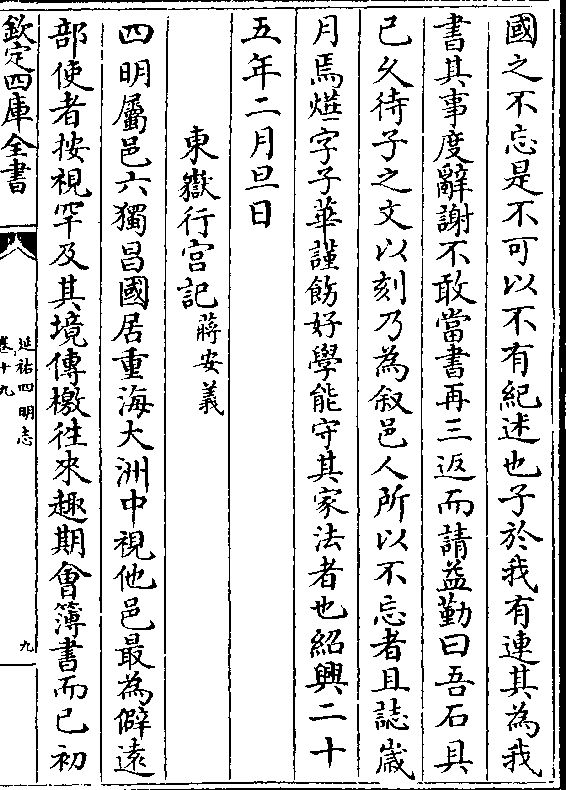 國之不忘是不可以不有紀述也子於我有連其為我
書其事度辭謝不敢當書再三返而請益勤曰吾石具
已久待子之文以刻乃為叙邑人所以不忘者且誌歲
月焉㷍字子華謹飭好學能守其家法者也紹興二十
五年二月旦日
東嶽行宮記蔣安義
四明屬邑六獨昌國居重海大洲中視他邑最為僻遠
部使者按視罕及其境傳檄往來趣期會簿書而已初
欽定四庫全書
延祐四明志
卷十九
九